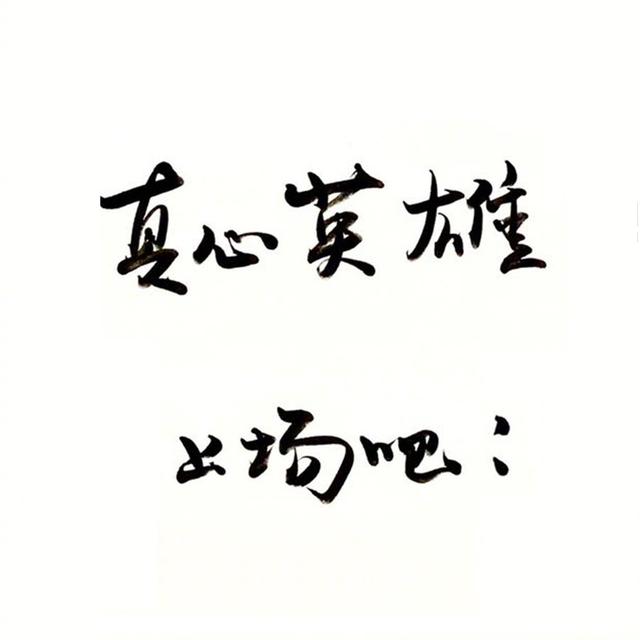 真心英雄
出场吧：